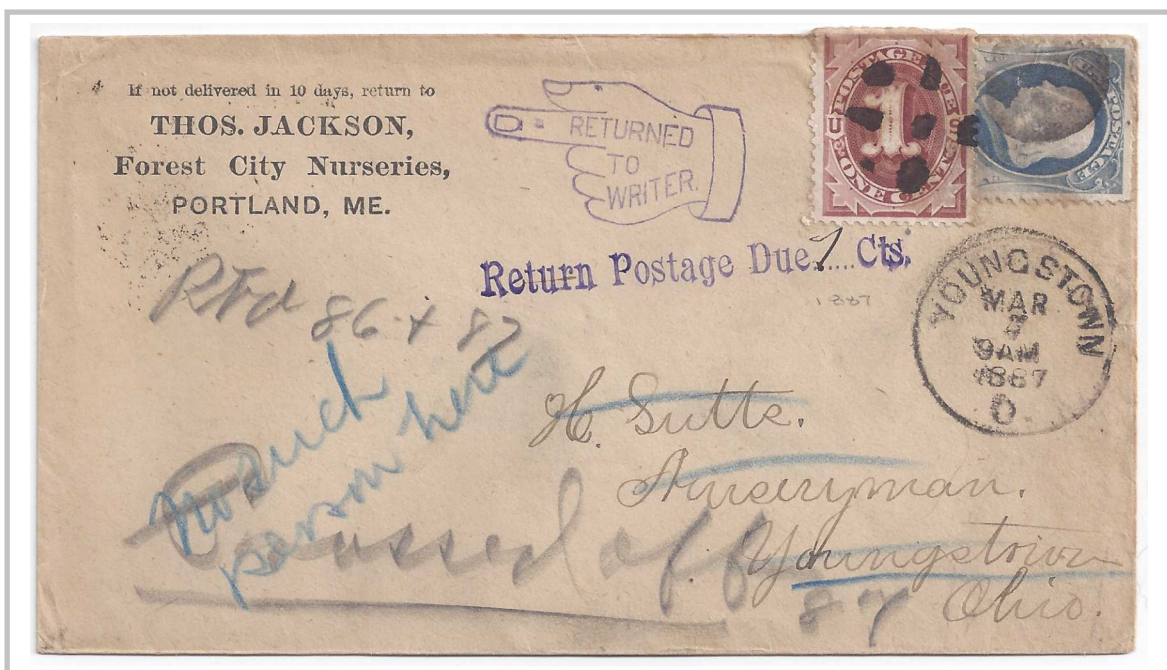 If not delivered in 10 days, return to
THOS. JACKSON,
Forest City Nurseries,
PORTLAND, ME.
RETURNED
TO
WRITER.
U POSTAGE DUE S
1
ONE CENT
POSTAGE
Return Postage Due 1 Cts.
1887
YOUNGSTOWN
MAR
9AM
1887
O.
86 + 87
No such
person here
H. Sutte.
Nurseryman.
Youngstown
Ohio.
off
87